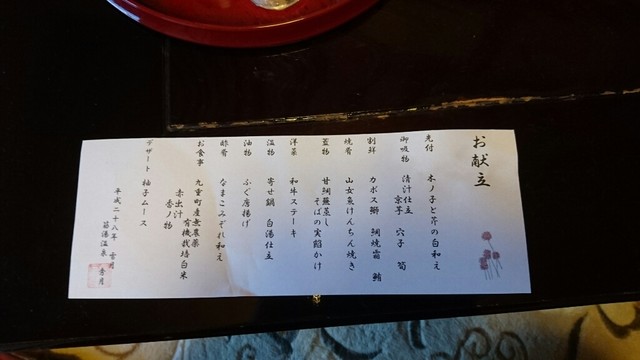 お献立
先付 木ノ子と芹の白和え
御吸物 清汁仕立
京芋 穴子 筍
割鮮 カボス鰤 鯛焼霜 鮪
焼肴 山女魚けんちん焼き
蓋物 甘鯛蕪蒸し
そばの実餡かけ
洋菜 和牛ステーキ
温物 寄せ鍋 白湯仕立
油物 ふぐ唐揚げ
酢肴 なまこみぞれ和え
お食事 九重町産無農薬
有機栽培白米
赤出汁
香ノ物
デザート 柚子ムース
平成二十八年 雪月
筋湯温泉